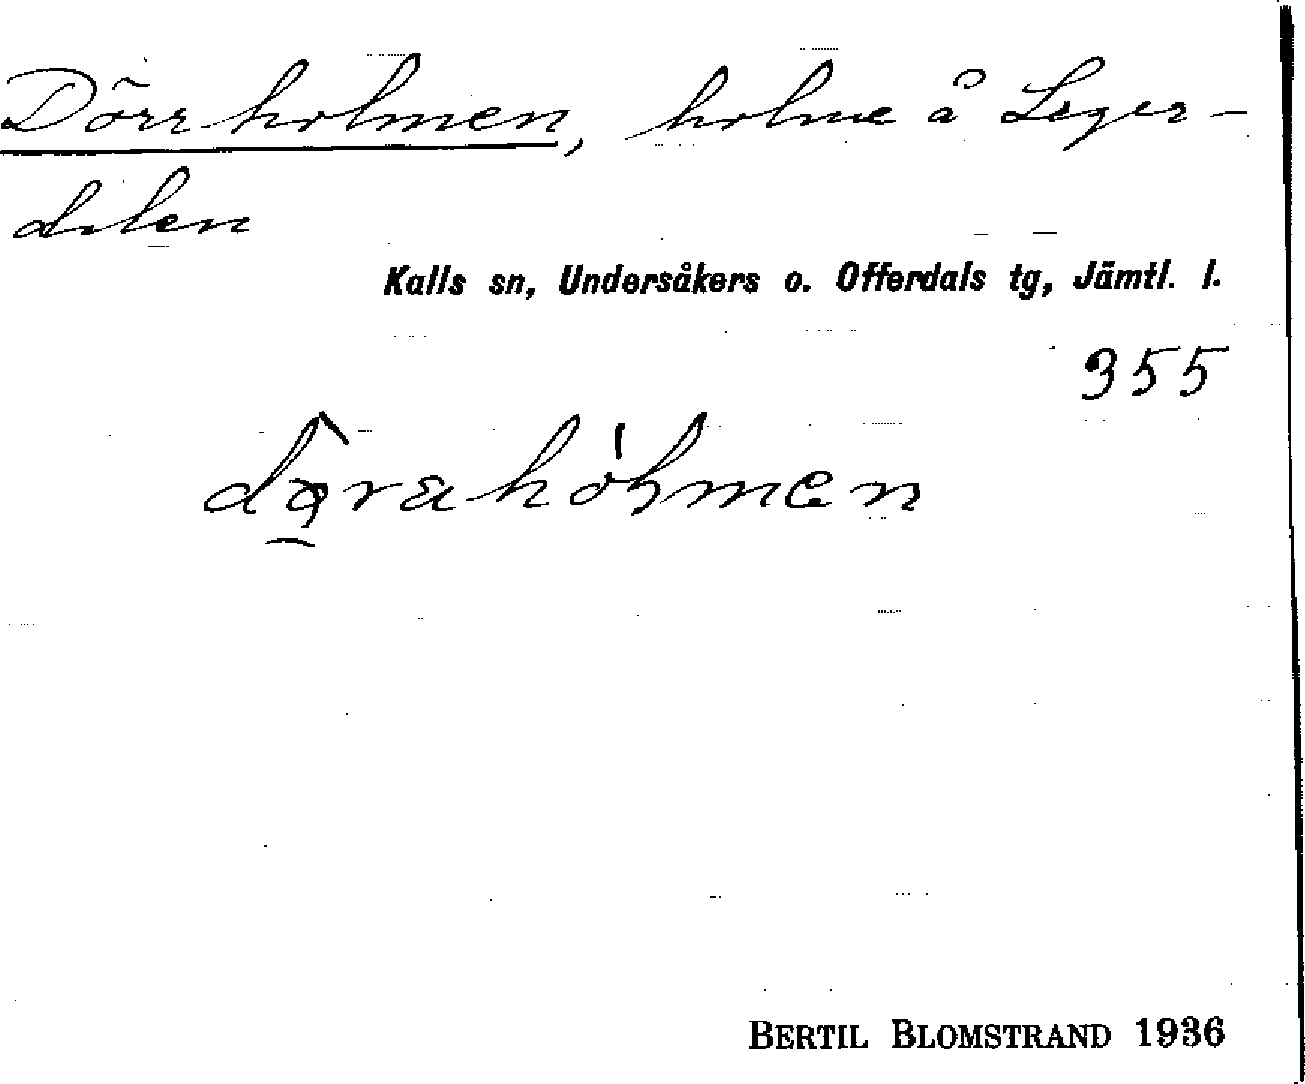 Dörrholmen, holme å Leger-
dılen
Kalls sn, Undersåkers o. Offerdals tg, Jämtl. l.
355
BERTIL BLOMSTRAND 1936